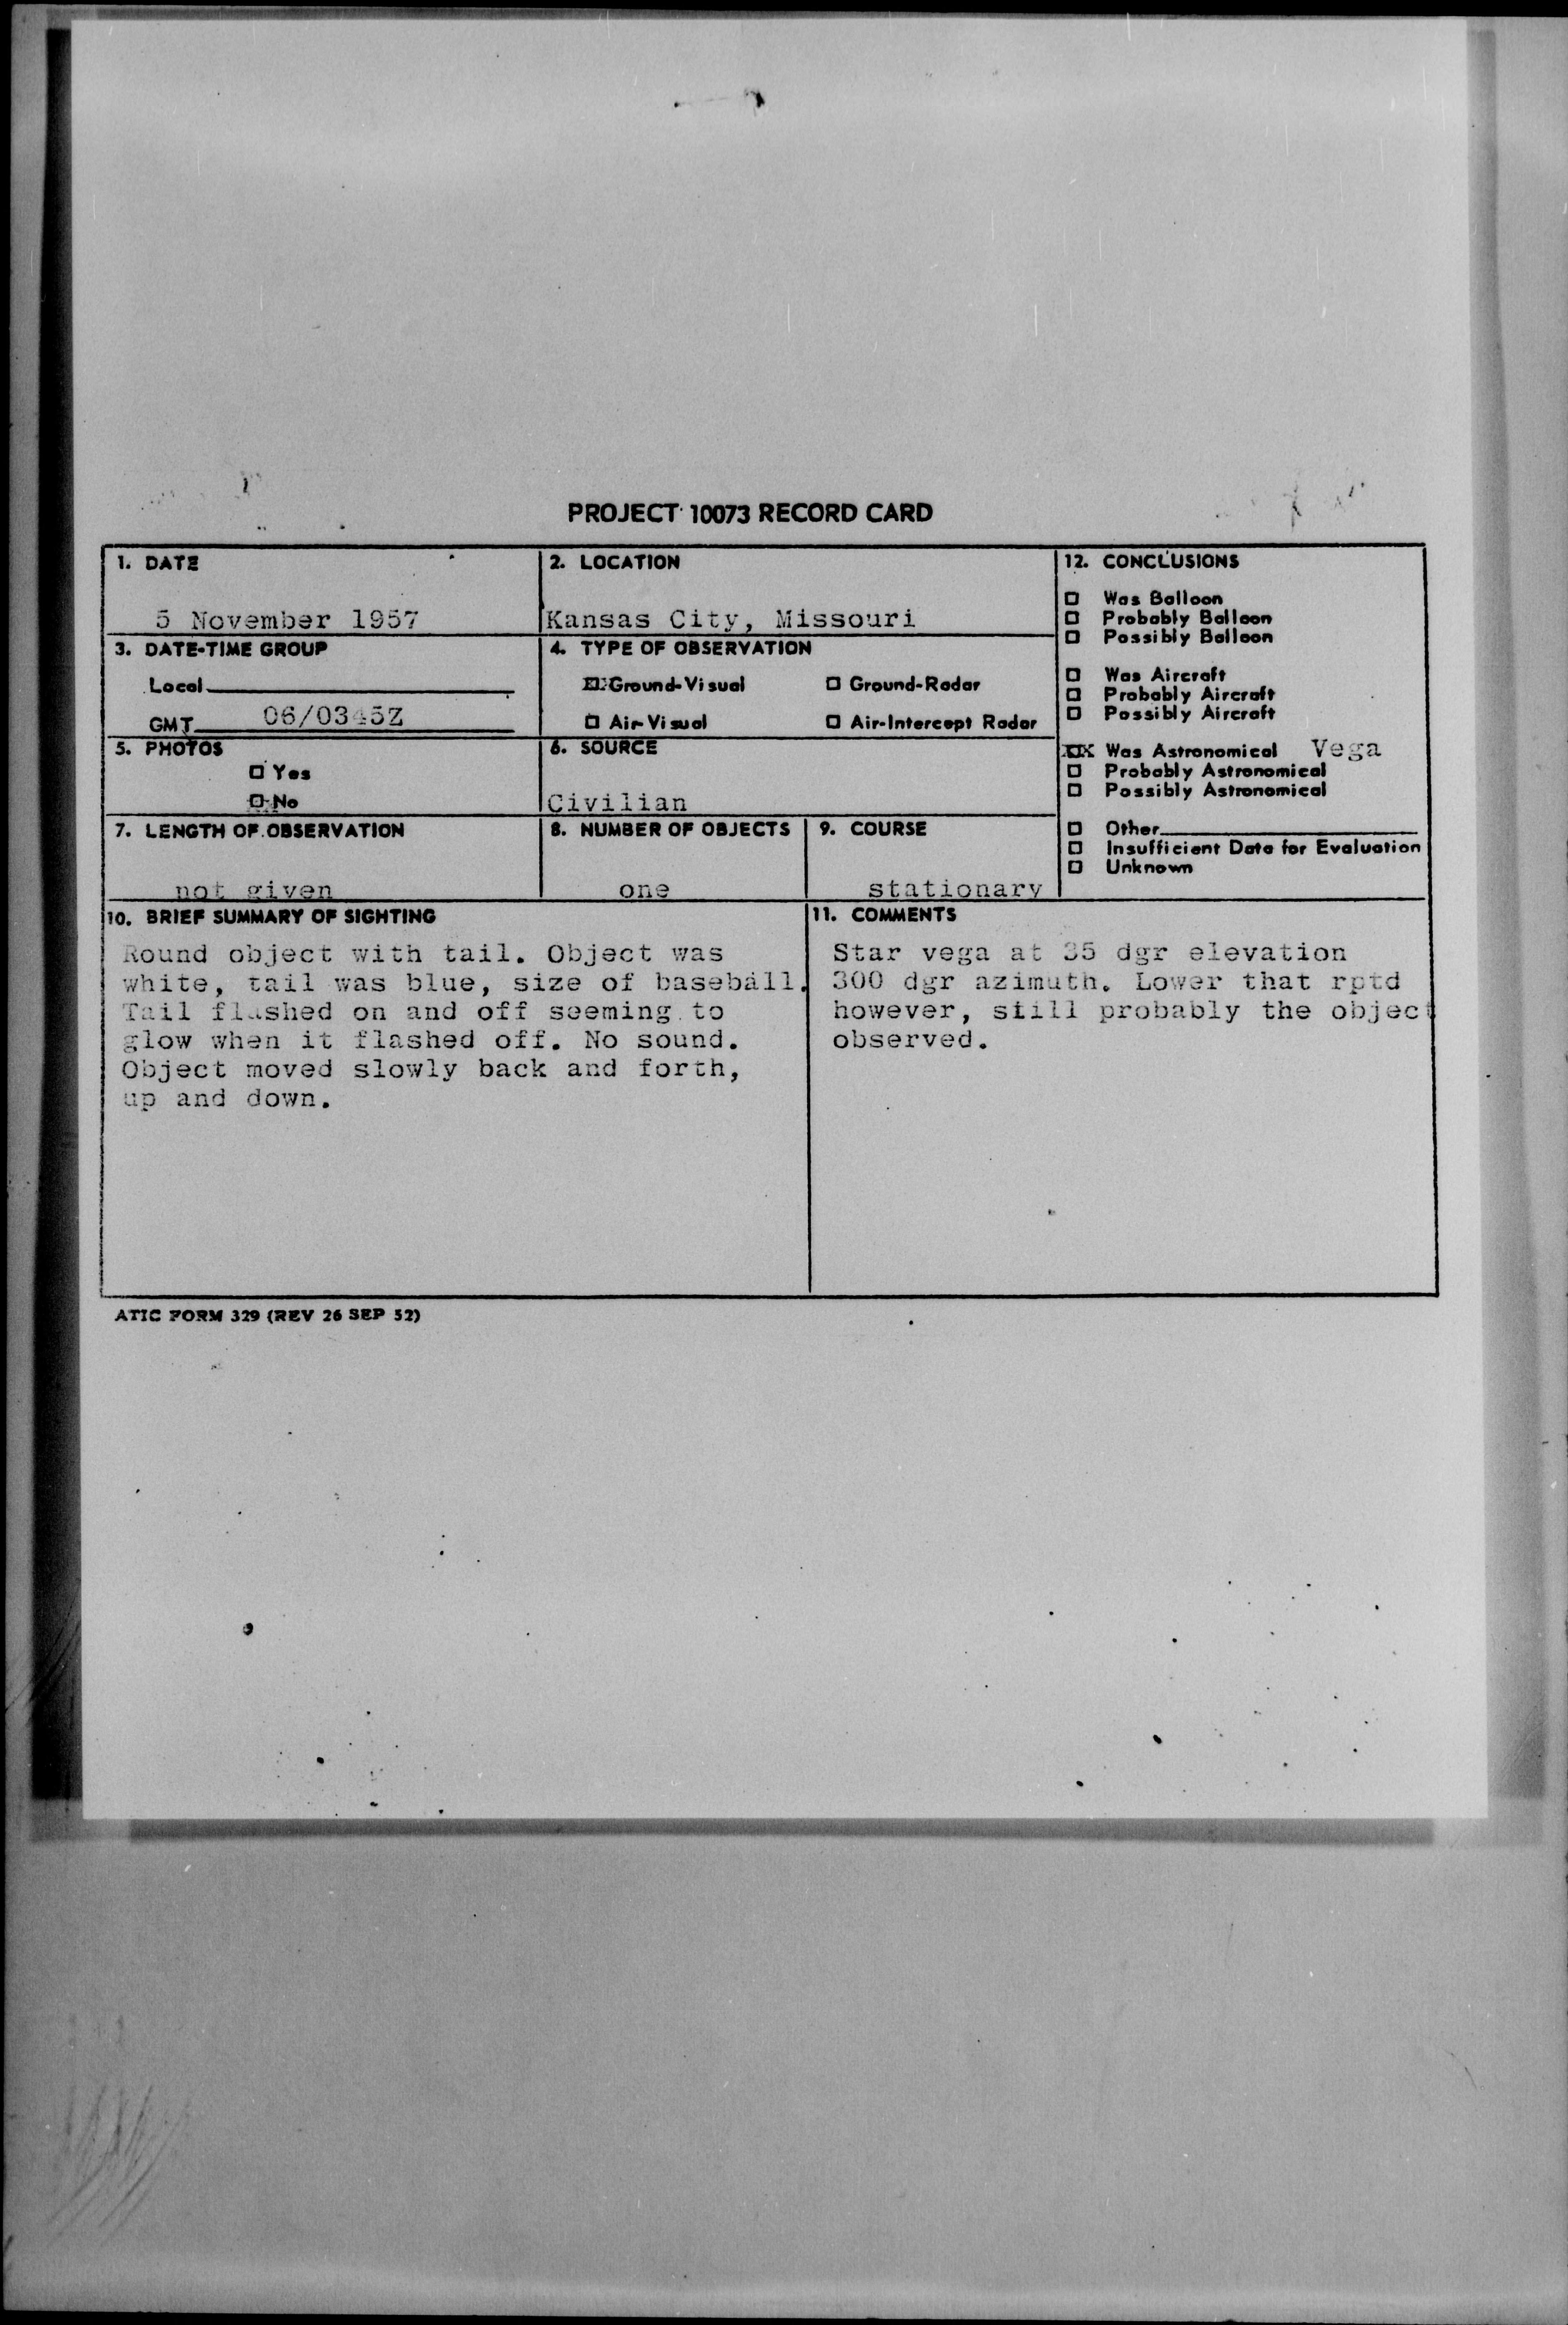 PROJECT 10073 RECORD CARD
1. DATE
5 November 1957
2. LOCATION
Kansas City, Missouri
3. DATE-TIME GROUP
Local
GMT 06/0345Z
4. TYPE OF OBSERVATION
Ground-Visual
Ground-Radar
Air-Visual
Air-Intercept Radar
5. PHOTOS
Yes
No
6. SOURCE
Civilian
7. LENGTH OF OBSERVATION
not given
8. NUMBER OF OBJECTS
one
9. COURSE
stationary
12. CONCLUSIONS
Was Balloon
Probably Balloon
Possibly Balloon
Was Aircraft
Probably Aircraft
Possibly Aircraft
XX Was Astronomical Vega
Probably Astronomical
Possibly Astronomical
Other
Insufficient Data for Evaluation
Unknown
10. BRIEF SUMMARY OF SIGHTING
Round object with tail. Object was
white, tail was blue, size of baseball.
Tail flashed on and off seeming to
glow when it flashed off. No sound.
Object moved slowly back and forth,
up and down.
11. COMMENTS
Star vega at 35 dgr elevation
300 dgr azimuth. Lower that rptd
however, still probably the object
observed.
ATIC FORM 329 (REV 26 SEP 52)